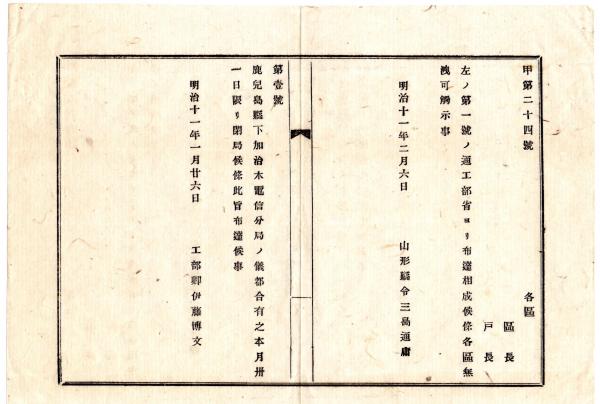 甲第二十四號
各區
區長
戸長
左ノ第一號ノ通工部省ヨリ布達相成候條各區無
洩可觸示事
明治十一年二月六日
山形縣令三島通庸
第壹號
鹿兒島縣下加治木電信分局ノ儀都合有之本月卅
一日限リ閉局候條此旨布達候事
明治十一年一月廿六日
工部卿伊藤博文